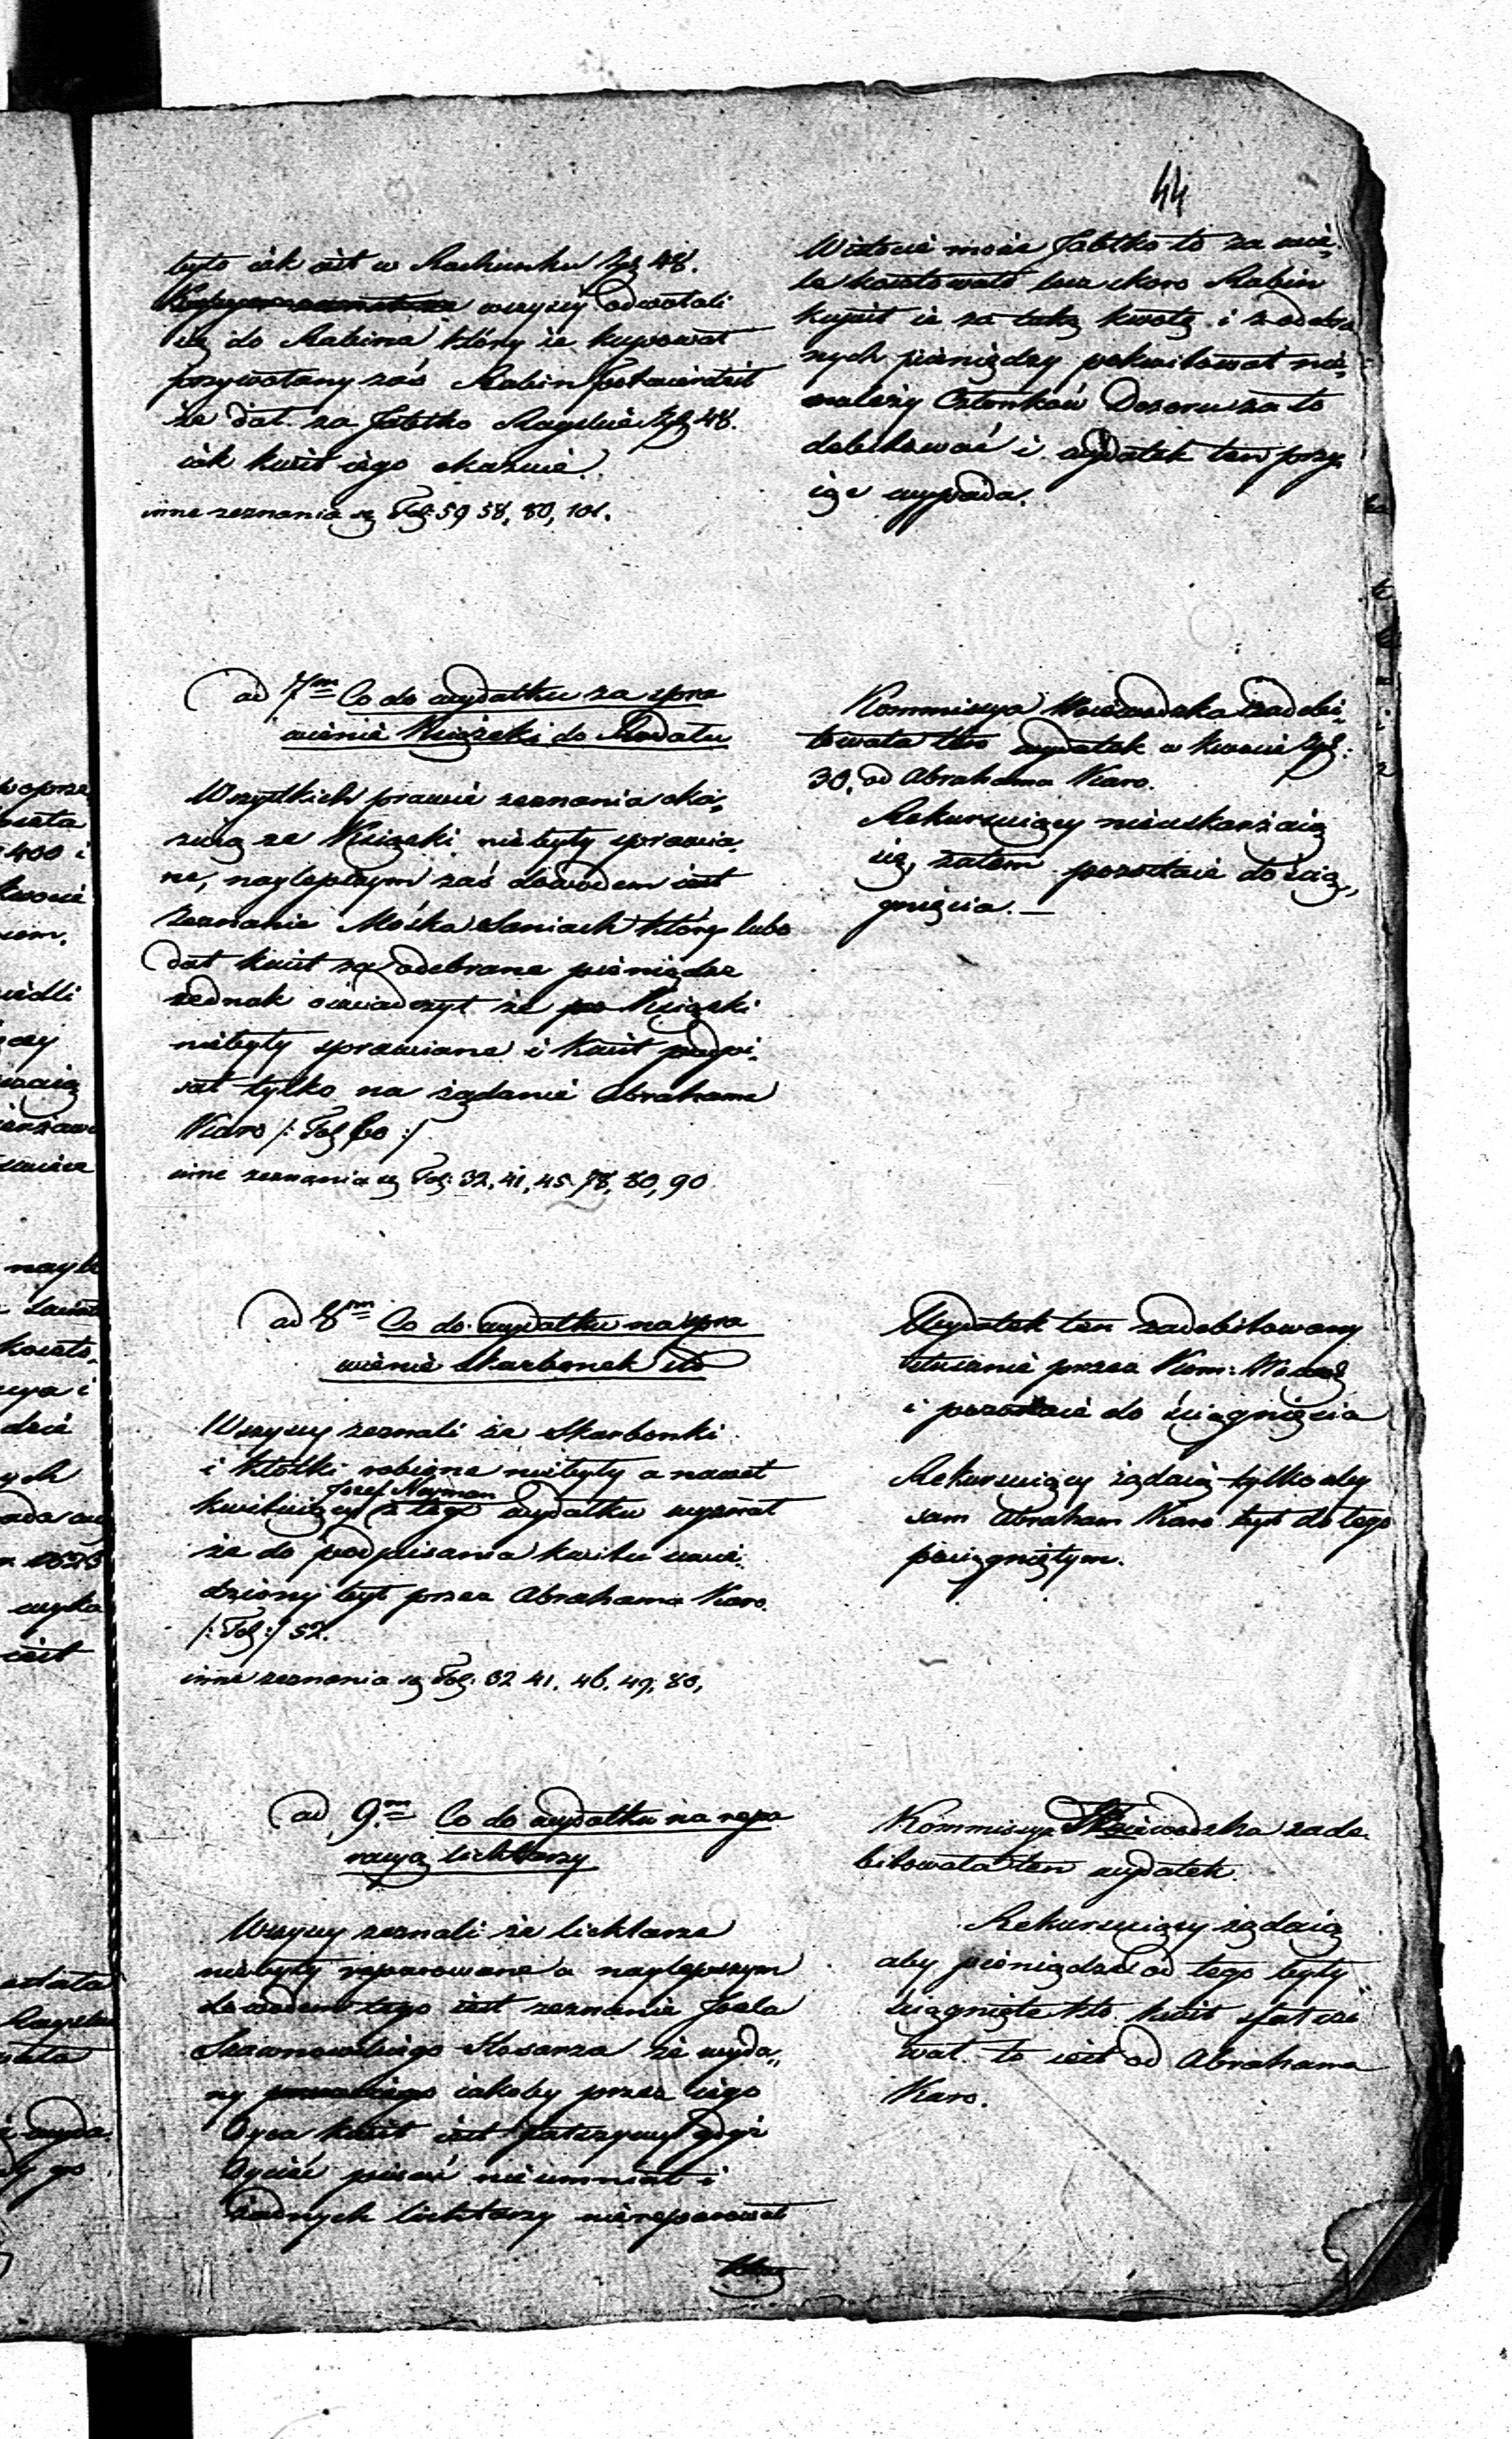 44
było iak iest w Rachunku Złp 48.
wszyscy odwołali
się do Rabina który ie kupował
przywołany zaś Rabin potwierdził
że dał za Jabłko Rayskie Złp 48.
iak kwit iego okazuie.
inne zeznania są Fol: 59 58, 80, 101.
Wistocie może Jabłko to za wie„
le kosztowało lecz skoro Rabin
kupił ie za taką kwotę i z odebra
nych pieniędzy pokwitował nie„
należy Członków Dozoru za to
debitować i wydatek ten przy„
iąć wypada.
ad 7m Co do wydatku za spra
wienie Książki do
Wszystkich prawie zeznania oka„
zuią że Książki niebyły sprawia„
ne, naylepszym zaś dowodem iest
Zeznanie Mośka który lubo
dał kwit za odebrane pieniądze
jednak oświadczył że Książki
niebyły sprawiane i kwit podpi„
sał tylko na żądanie Abrahama
Karo /: Fol 60 :/
inne zeznania są Fol: 32, 41, 45. 78, 80, 90
Kommissya Woiewodzka zadebi„
towała ten wydatek w kwocie Złp:
30, od Abrahama Karo.
Rekursuiący nieuskarżaią
się, zatem pozostaie do ścią„
gnięcia. —
ad 8m Co do wydatku na spra
wienie skarbonek itd
Wszyscy zeznali że Skarbonki
i kłótki robione niebyły a nawet
Josef Neyman
kwituiący z tego wydatku wyznał
że do podpisania kwitu uwie„
dziony był przez Abrahama Karo.
/: Fol :/ 52.
inne zeznania są Fol: 32 41. 46. 49, 80,
Wydatek ten zadebitowany
słusznie przez Kom: Woiew
i pozostaie do ściągnięcia
Rekursuiący żądaią tylko aby
sam Abraham Karo był do tego
pociągniętym.
ad 9m Co do wydatku na repa
racyą lichtarzy
Wszyscy zeznali że lichtarze
niebyły reparowane a naylepszym
dowodem tego iest zeznanie Joela
Ślosarza że wyda„
ny iakoby przez iego
Oyca kwit iest fałszywy gdyż
Oyciec pisać nieumniał i
żadnych lichtarzy niereparował
Kommissya Woiewodzka zade„
bitowała ten wydatek.
Rekursuiący żądaią
aby pieniądze od tego były
ściągnięte kto kwit sfałszo
wał to iest od Abrahama
Karo.